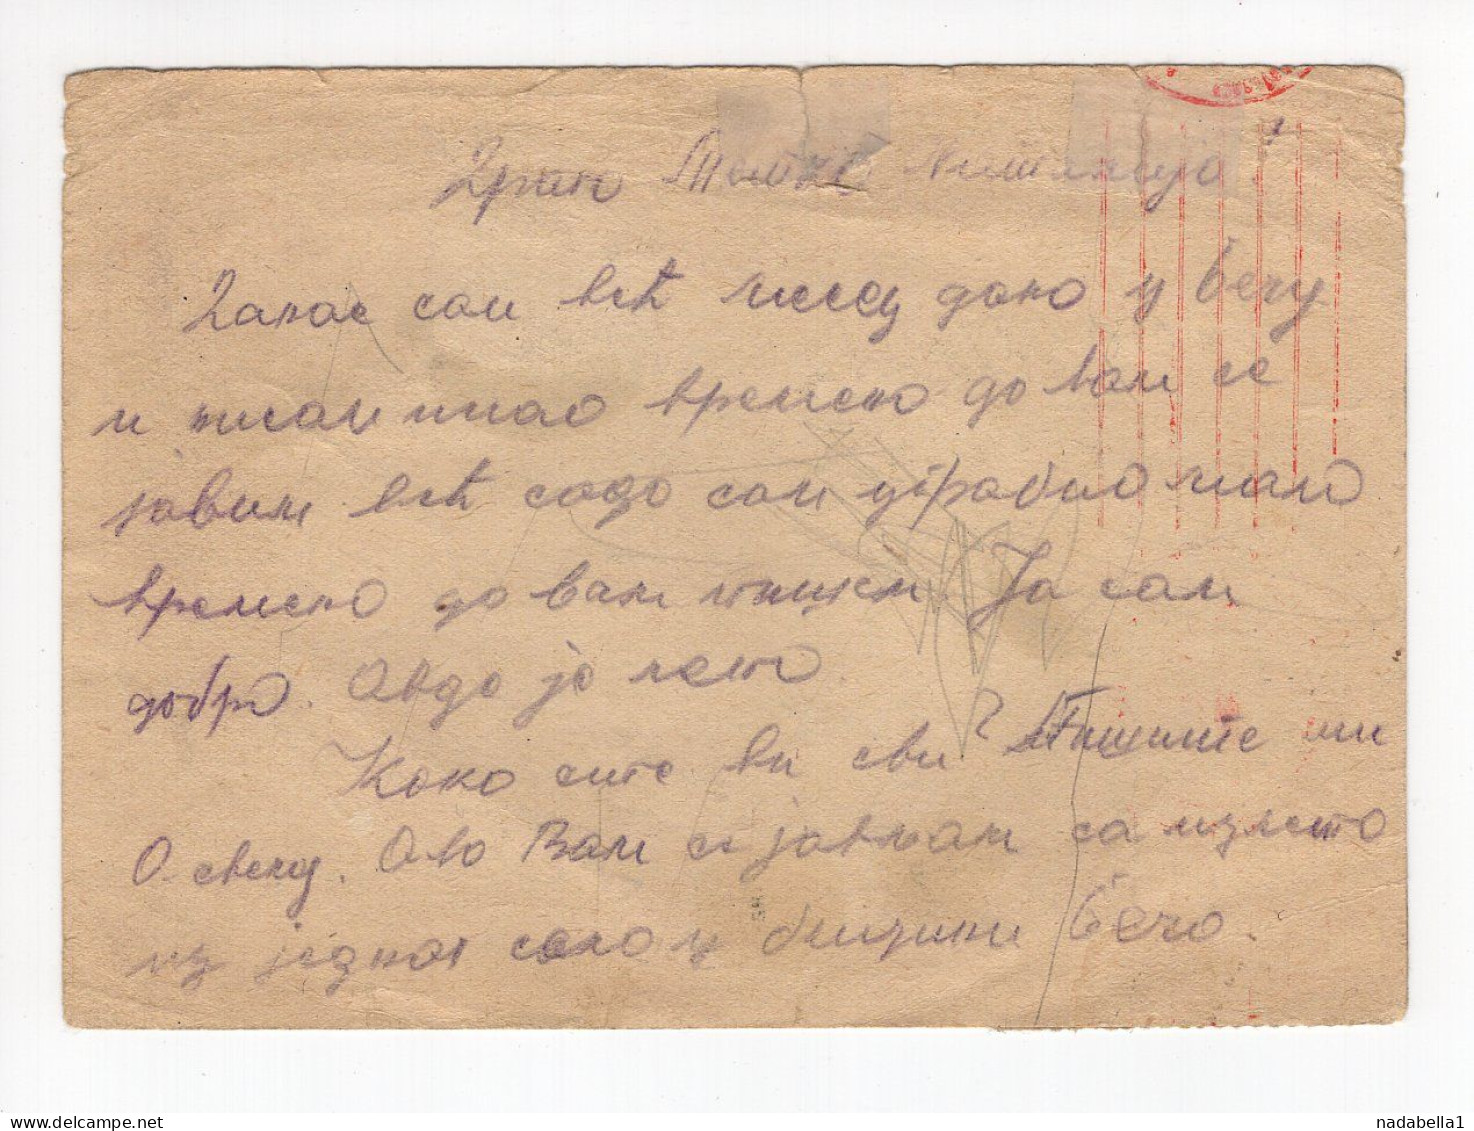 Данас сам већ месец дана у Бечу
и нисам имао времена да вам се
јавим већ сада сам уграбио мало
времена да вам пишем. Ја сам
добро. Овде је лепо
Како сте ви сви? Пишите ми
О свему. Ово Вам се јављам са
из једног села у близини Беча.
nadabella1